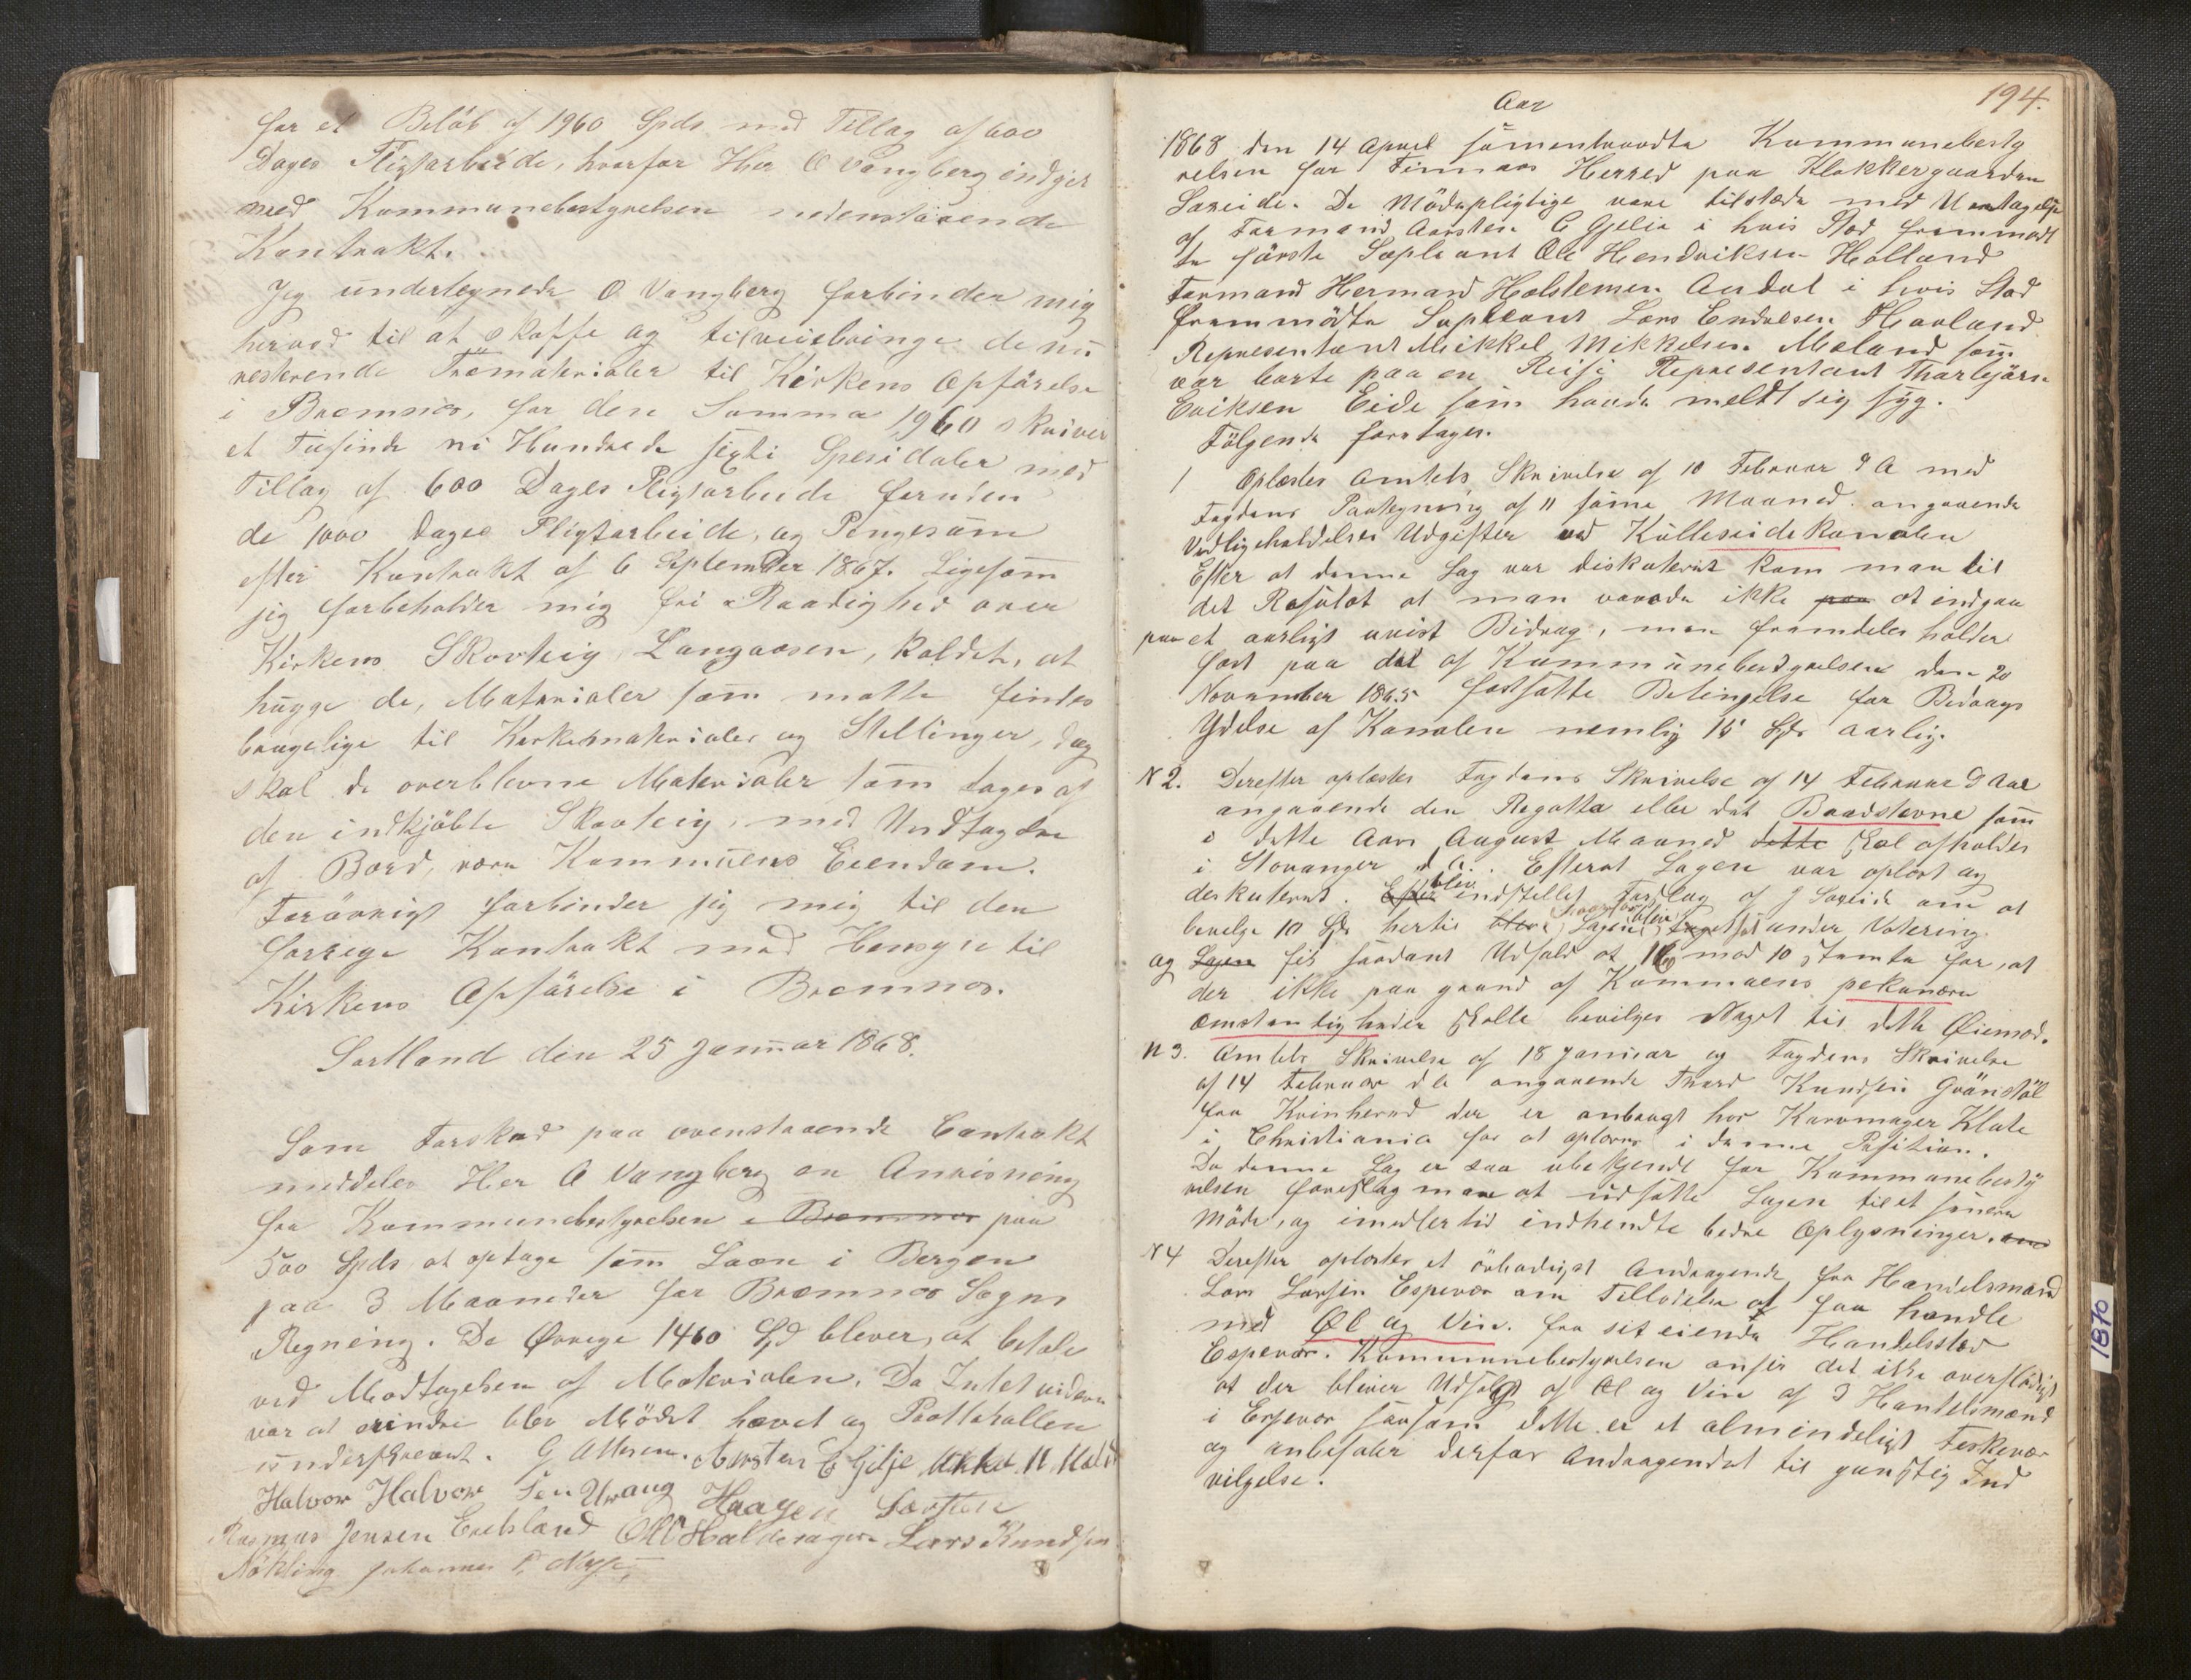 for et Beløb af 1960 Spds med Tillag af 600
Dages Pligtarbeide, hvorfor Her O Vangberg indgik
med Kommunebestyrelsen nedenstaaende
Kontrakt.
Jeg undertegnede O Vangberg forbinder mig
herved til at skaffe og tilveiebringe de nu
resterende Træmaterialer til Kirkens Opførelse
i Bremnes, for den Somma 1960 skriver
et Tusinde ni Hundrede sexti Spesidaler med
Tillag af 600 Dages Pligtarbeide foruden
de 1000 Dages Pligtarbeide, og Pengesum
efter Kontrakt af 6 September 1867. Ligesom
jeg forbeholder mig fri Raadighed over
Kirkens Skovteig Langaasen, kaldet, at
hugge de, Materialer som motte findes
brugelige til Kirkematerialer og Stellinger, dog
skal de overblevne Materialer som tages af
den indkjøbte Skovteig, med Undtagelse
af Bord, være Kommunens Eiendom.
Forøvrigt forbinder jeg mig til den
forrege Kontrakt med Hensyn til
Kirkens Opførelse i Bremnes.
Sortland den 25 Januar 1868.
Som Forskud paa ovenstaaende Contrakt
meddeles Her O Vangberg en Anvisning
fra Kommunebestyrelsen i Bremnes paa
500 Spds at optage som Laan i Bergen
paa 3 Maaneder for Bremnes Sogns
Regning. De Øvrege 1460 Spd blever, at betale
ved Modtagelsen af Materialen. Da Intet videre
var at erindre blev Mødet hævet og Protokollen
underskrevet. G Ottesen. Aarsten C Gjelje Mikkel M. Mæld
Halvor Halvorsen Urang Haagen Larsen
Rasmus Jensen Enebland Ole Haldorsen Lars Knudsen
Nøkling Johannes P.
194.
Aar
1868 den 14 April samentraadte Kommunebesty
relsen for Finnaas Herred paa Klokkergaarden
Søreide. De Mødepligtige vare tilstæde med Unntagelse
af Formand Aarsten C Gjelie i hvis Sted fremmødt
te første Supleant Ole Hendriksen Holland
Formand Hermand Holstensen Aadal i hvis Stad
fremmødte Supleant Lars Endresen Havland
Representant Mikkel Mikkelsen Meland som
var borte paa en Reise Representant Thorbjørn
Eriksen Eide som havde meldt sig syg.
Følgende foretages.
1 Oplæstes Amtets Skrivelse af 10 Februar d A med
Fogdens Paategning af 11 same Maaned angaaende
Vedligeholdelses Udgifter ved Kulleseidekanalen
Efter at denne Sag var diskuteret kom man til
det Resultat at man varede ikke paa at indgaa
paa et aarligt uvist Bidrag, men fremdeles holder
fast paa det af Kommunebestyrelsen den 20
November 1865 fastsatte Betingelse for Bidrags
Ydelse af Kanalen nemlig 15 Spd aarlig.
N 2. Derefter oplæstes Fogdens Skrivelse af 14 Februar d Aar
angaaende den Regatta eller det Baadstevne som
i dette Aars August Maaned dette skal afholdes
i Stavanger d A. Efterat Sagen var oplæst og
deskuteret. Efter blev indstillet Forslag af J Søreide om at
bevelge 10 Spd hertil blev Sagen blev taget sat under Votering.
og Sagen fik saadant Udfald at 16 mod 10 stemte for, at
der ikke paa grund af Kommunens pekunære
omstendigheder skulle bevilges Noget til dette Øiemed.
N 3. Amtets Skrivelse af 18 Januar og Fogdens Skrivelse
af 14 Februar d A angaaende Knudsen Grønstøl
fra Kvinherred der er anbragt hos Kurvmager Klute
i Christiania for at oplæres i denne Position.
Da denne Sag er saa ubekjendt for Kommunebesty
relsen foreslag man at udsætte Sagen til et senere
Møde, og imedlertid indhendte bedre Oplysninger. om
N 4 Derefter oplæstes et ærbødigst Andragende fra Handelsmand
Lars Larsen Espevær om Tilladelse at faa handle
med Øl og Vin. fra sit eiende Handelssted
Espevær. Kommunebestyrelsen anser det ikke overflødigt
at der bliver Udsalgt af Øl og Vin af 3 Handelsmænd
i Espevær saasom dette er et almindeligt Feskevær
og anbefaler derfor Andragendet til gunstig Ind
vilgelse.
1870